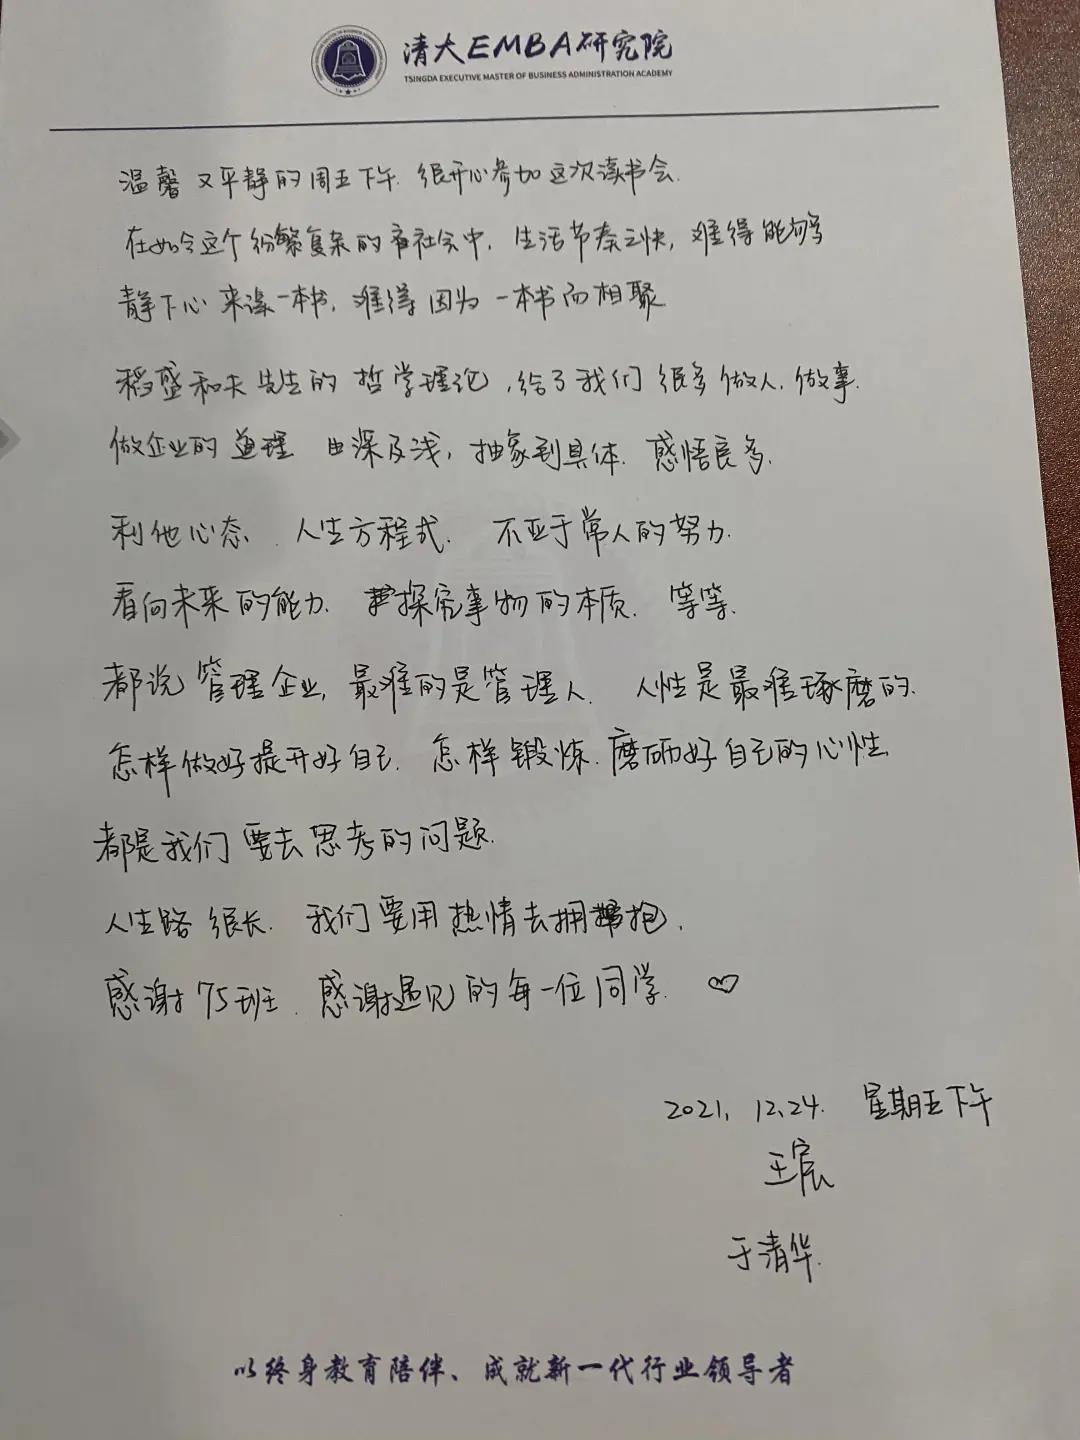 清大EMBA研究院
TSINGDA EXECUTIVE MASTER OF BUSINESS ADMINISTRATION ACADEMY
温馨又平静的周五下午.很开心参加这次读书会.
在如今这个纷繁复杂的社会中,生活节奏之快,难得能够
静下心来读一本书,难得因为一本书而相聚
稻盛和夫先生的哲学理论,给了我们很多做人.做事.
做企业的道理 由深及浅,抽象到具体.感悟良多.
利他心态.人生方程式.不亚于常人的努力.
看向未来的能力.探究事物的本质.等等.
都说管理企业,最难的是管理人.人性是最难琢磨的.
怎样做好提升好自己.怎样锻炼.磨砺好自己的心性
都是我们要去思考的问题.
人生路很长.我们要用热情去拥抱.
感谢75班.感谢遇见的每一位同学.♡
2021.12.24.星期五下午
王宸
于清华.
以终身教育陪伴、成就新一代行业领导者